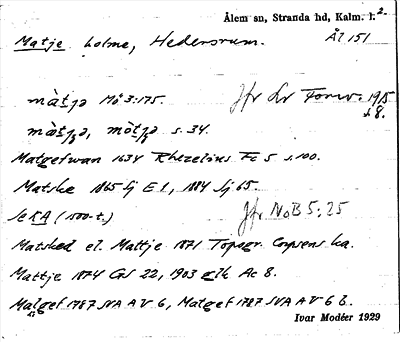 Ålem sn, Stranda hd, Kalm. l. 2.
Matje holme, Hedersrum. Ål 151
Mö 3:175. Jfr Lv Fornv. 1915
s. 8.
s. 34.
Matgefwan 1634 Rhezelius Fc 5 s. 100.
Matske 1865 Sj E 1, 1884 Sj 65.
Se KA (1500-t.) Jfr NoB 5:25
Matsked el. Mattje 1871 Topogr. Corpsens ka.
Mattje 1874 GS 22, 1903 elk Ac 8.
Malgef 1787 SVA A V 6, Matgef 1787 SVA A V 6 b.
Ivar Modéer 1929